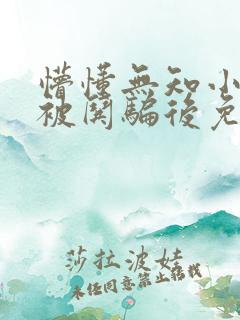 懵懂無知小
被哄騙後免
莎拉波娃
未经同意禁止转载